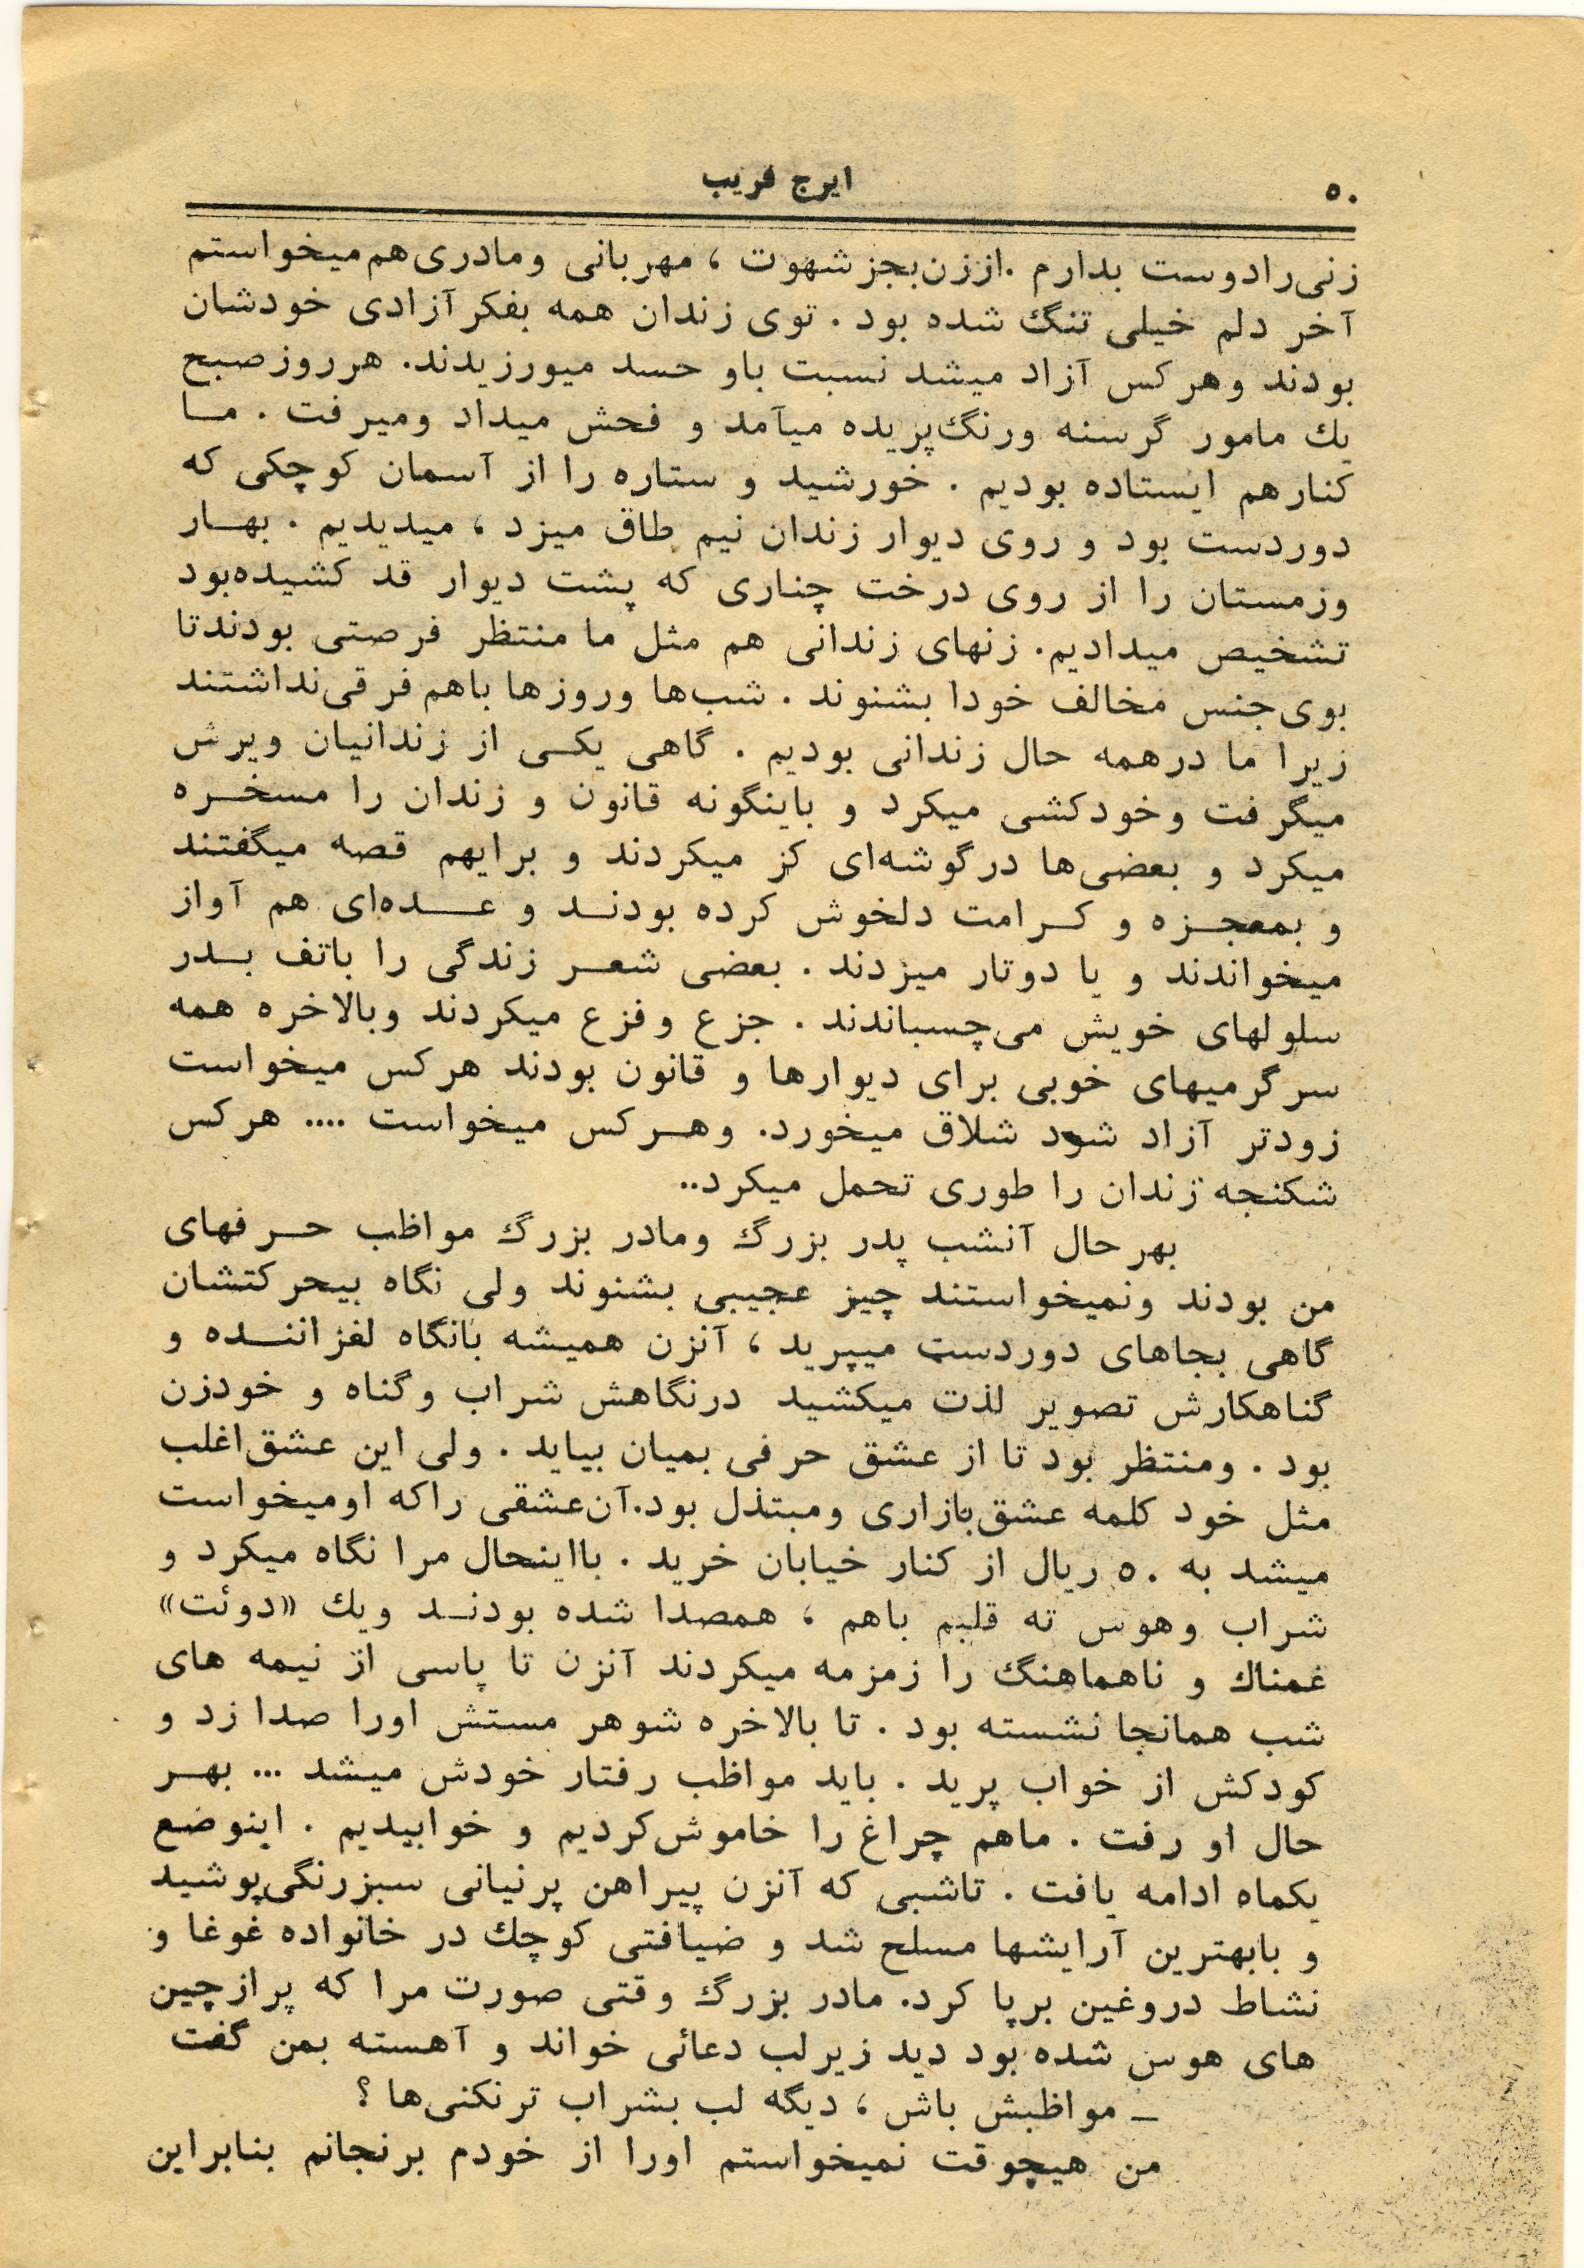 ۵۰
ایرج قریب
زنی‌رادوست بدارم .اززن‌بجزشهوت ، مهربانی ومادری‌هم‌میخواستم
آخر دلم خیلی تنگ شده بود . توی زندان همه بفکر آزادی خودشان
بودند وهرکس آزاد میشد نسبت باو حسد میورزیدند. هرروزصبح
یك مامور گرسنه ورنگ‌پریده میآمد و فحش میداد ومیرفت . مـا
کنارهم ایستاده بودیم . خورشید و ستاره را از آسمان کوچکی که
دوردست بود و روی دیوار زندان نیم طاق میزد ، میدیدیم . بهـار
وزمستان را از روی درخت چناری که پشت دیوار قد کشیده‌بود
تشخیص میدادیم. زنهای زندانی هم مثل ما منتظر فرصتی بودندتا
بوی‌جنس مخالف خودا بشنوند . شب‌ها وروزها باهم فرقی‌نداشتند
زیرا ما درهمه حال زندانی بودیم . گاهی یکـی از زندانیان ویرش
میگرفت وخودکشی میکرد و باینگونه قانون و زندان را مسخـره
میکرد و بعضی‌ها درگوشه‌ای کز میکردند و برایهم قصه میگفتند
و بمعجـزه و کـرامت دلخوش کرده بودنـد و عـده‌ای هم آواز
میخواندند و یا دوتار میزدند . بعضی شعـر زندگی را باتف بـدر
سلولهای خویش می‌چسباندند . جزع وفزع میکردند وبالاخره همه
سرگرمیهای خوبی برای دیوارها و قانون بودند هرکس میخواست
زودتر آزاد شود شلاق میخورد. وهـرکس میخواست .... هرکس
شکنجه زندان را طوری تحمل میکرد..
بهرحال آنشب پدر بزرگ ومادر بزرگ مواظب حـرفهای
من بودند ونمیخواستند چیز عجیبی بشنوند ولی نگاه بیحرکتشان
گاهی بجاهای دوردست میپرید ، آنزن همیشه بانگاه لغزاننـده و
گناهکارش تصویر لذت میکشید درنگاهش شراب وگناه و خودزن
بود . ومنتظر بود تا از عشق حرفی بمیان بیاید . ولی این عشق‌اغلب
مثل خود کلمه عشق‌بازاری ومبتذل بود.آن‌عشقی راکه اومیخواست
میشد به ۵۰ ریال از کنار خیابان خرید . بااینحال مرا نگاه میکرد و
شراب وهوس ته قلبم باهم ، همصدا شده بودنـد ویك «دوئت»
غمناك و ناهماهنگ را زمزمه میکردند آنزن تا پاسی از نیمه های
شب همانجا نشسته بود . تا بالاخره شوهر مستش اورا صدا زد و
کودکش از خواب پرید . باید مواظب رفتار خودش میشد ... بهـر
حال او رفت . ماهم چراغ را خاموش‌کردیم و خوابیدیم . اینوضع
یکماه ادامه یافت . تاشبی که آنزن پیراهن پرنیانی سبزرنگی‌پوشید
و بابهترین آرایشها مسلح شد و ضیافتی کوچك در خانواده غوغا و
نشاط دروغین برپا کرد. مادر بزرگ وقتی صورت مرا که پرازچین
های هوس شده بود دید زیرلب دعائی خواند و آهسته بمن گفت
ـ مواظبش باش ، دیگه لب بشراب ترنکنی‌ها ؟
من هیچوقت نمیخواستم اورا از خودم برنجانم بنابراین